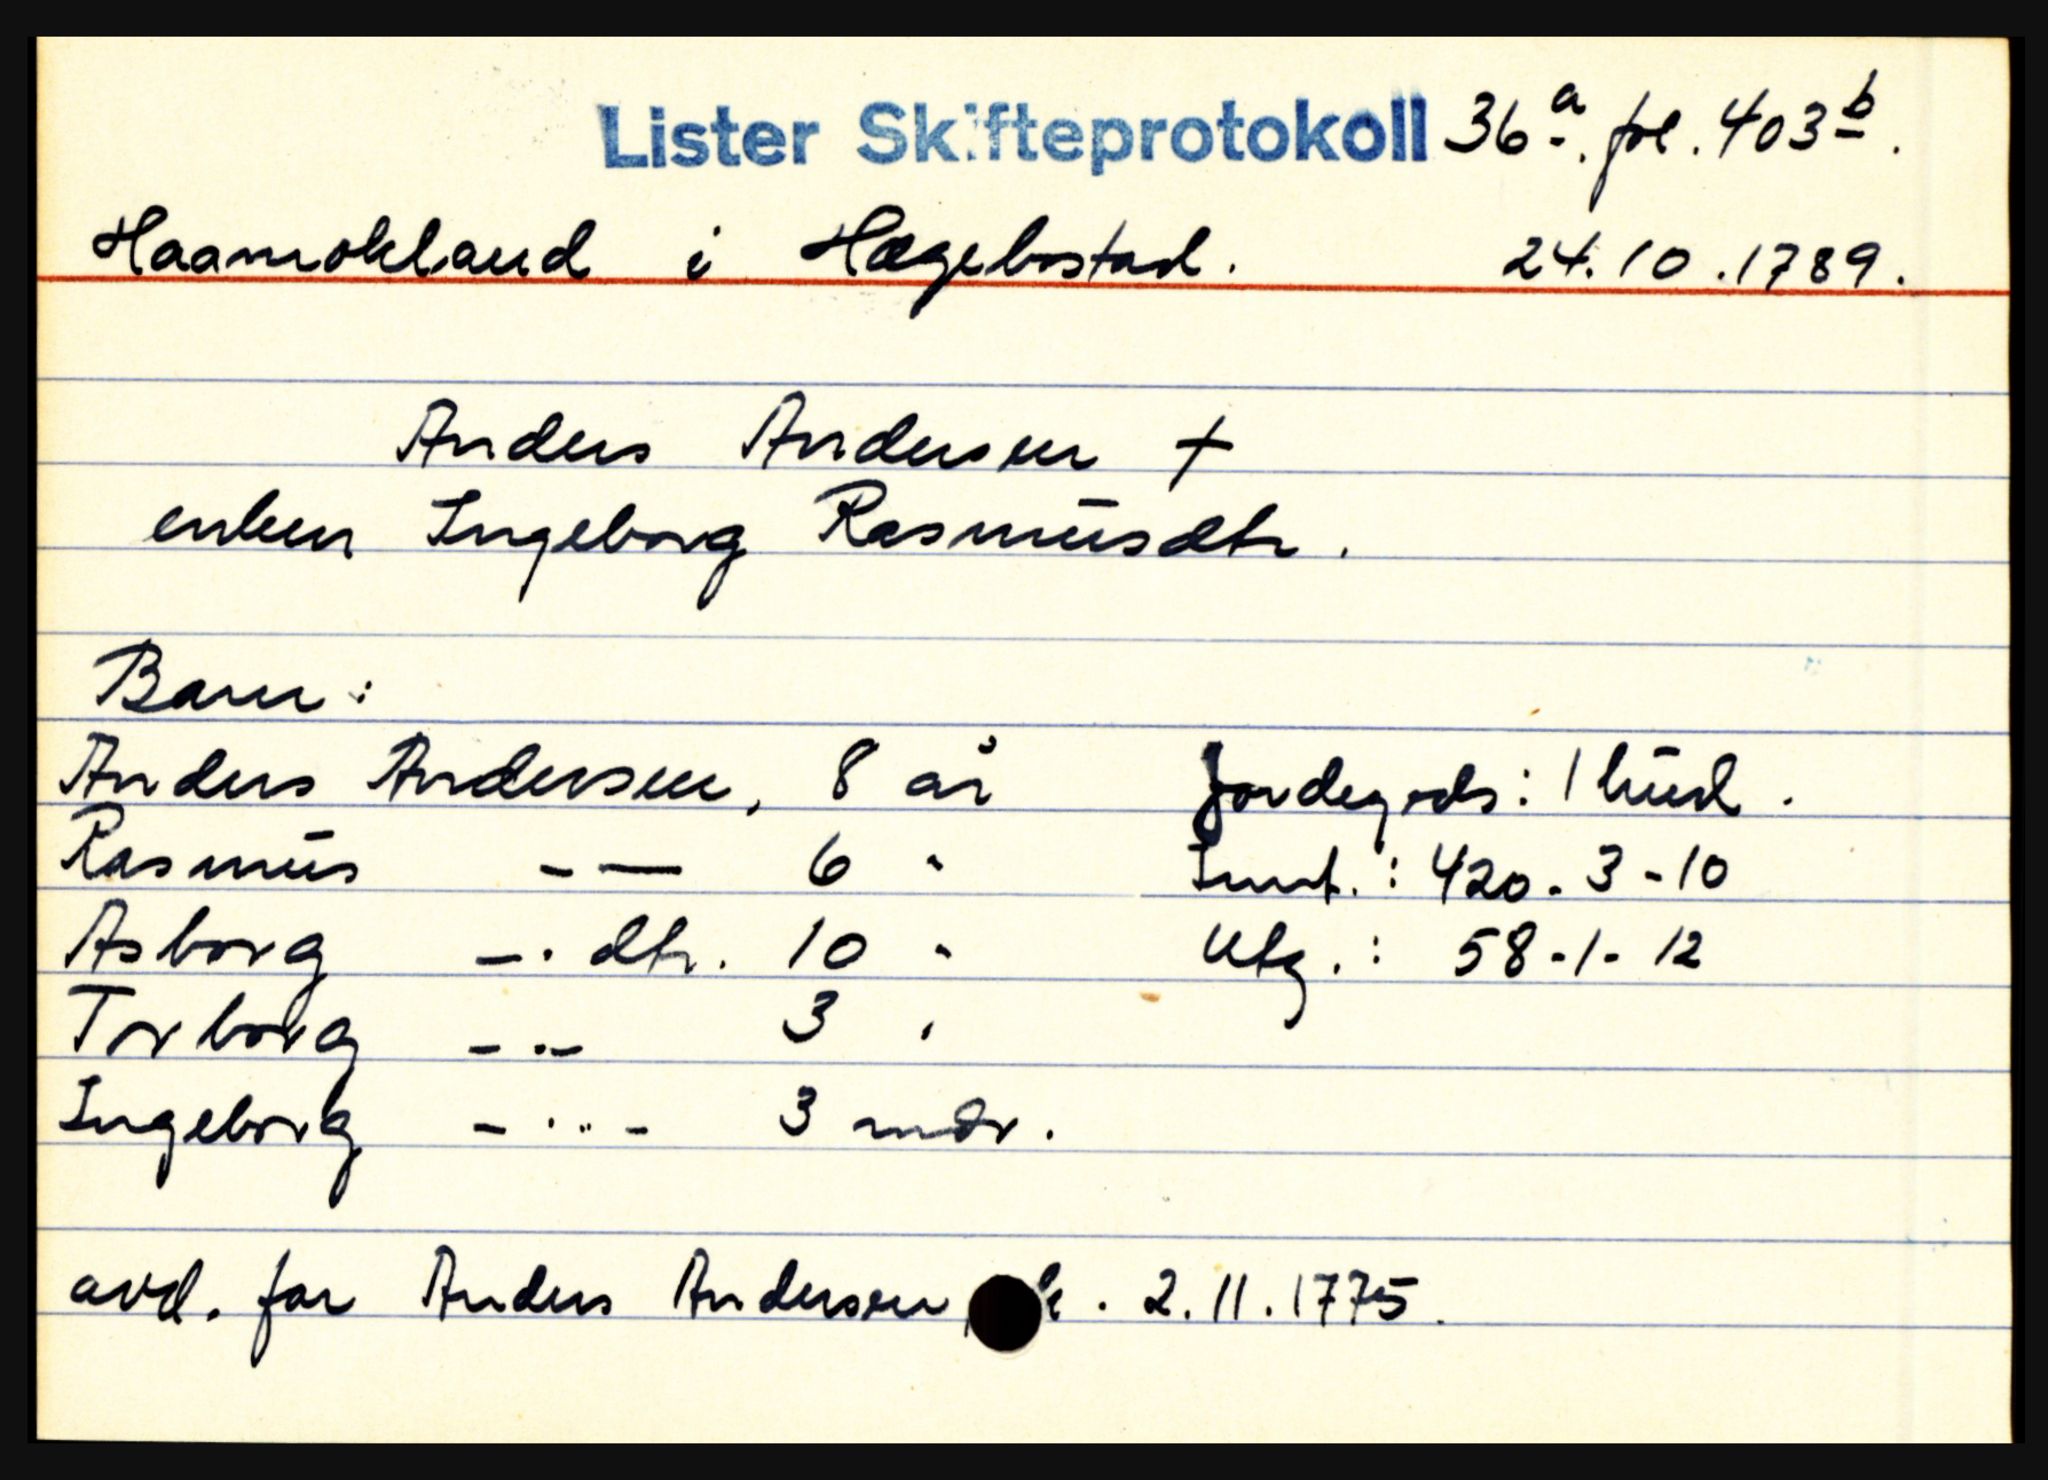 Lister Skifteprotokoll 36a. fol. 403b.
Haanrokland i Hægebostad. 24.10.1789.
Anders Andersen †
enken Ingeborg Rasmusdtr.
Barn:
Anders Andersen, 8 år Jordegods: 1 hud.
Rasmus - — 6 " Innt.: 420-3-10
Asborg -. dtr. 10 " Utg.: 58-1-12
Torborg -.- 3 "
Ingeborg - . .. - 3 mdr.
avd. far Anders Andersen, 2.11.1775.